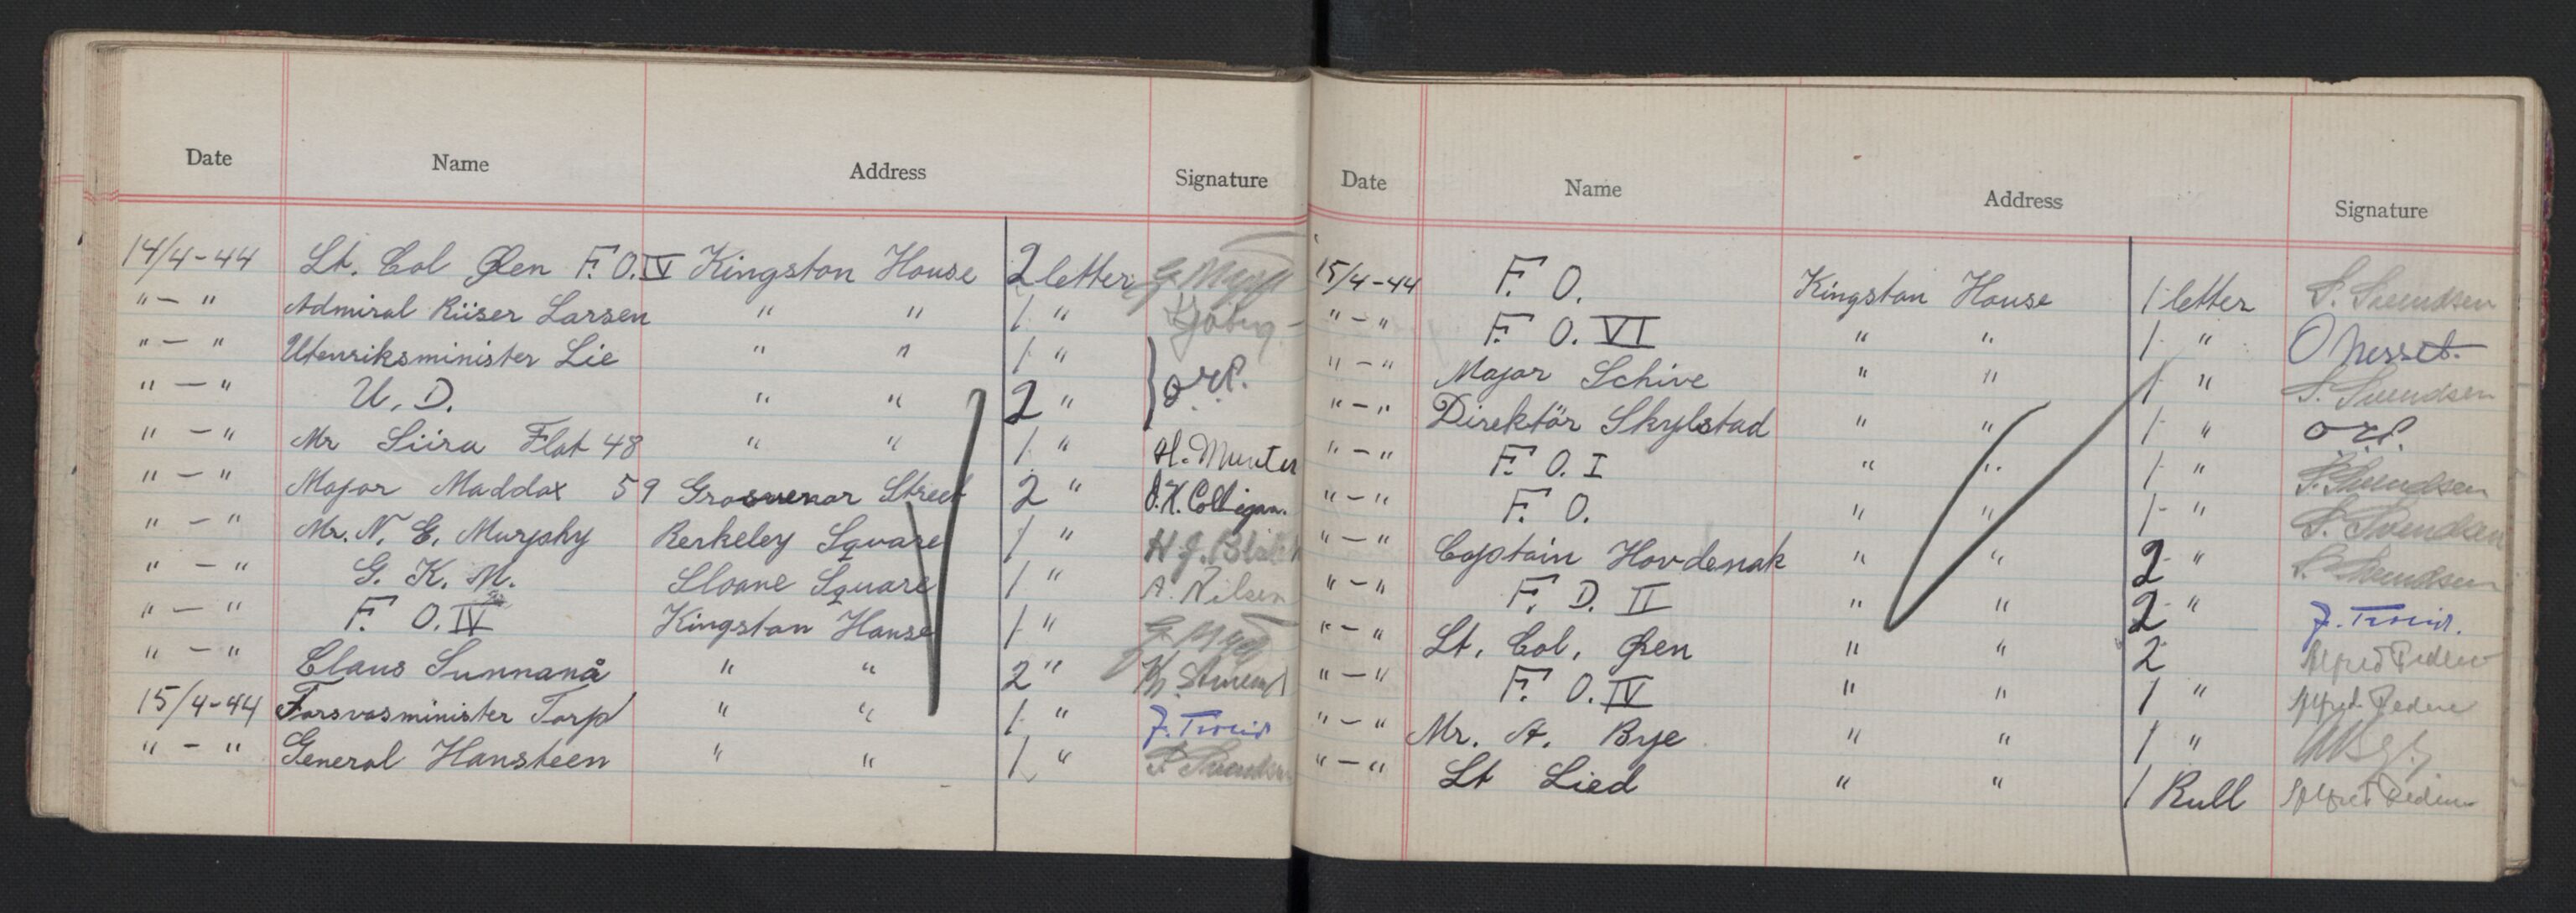 Date Name Address Signature
14/4-44 Lt. Col Øen F.O. IV Kingston House 2 letter
"-" Admiral Riiser Larsen " " 1 "
"-" Utenriksminister Lie " " 1 "
"-" U. D. " " 2 "
"-" Mr Siira Flat 48 " " 1 " H. Munter
"-" Major Maddox 59 Grosvenor Street 2 " J.K. Colligan.
"-" Mr. N. E. Murphy Berkeley Square 1 "
"-" G. K. M. Sloane Square 1 " A. Nilsen
"-" F. O. IV Kingston House 1 "
"-" Claus Sunnanå " " 2 "
15/4-44 Forsvasminister Torp " " 1 "
"-" General Hansteen " " 1 " S. Svendsen
Date Name Address Signature
15/4-44 F. O. Kingston House 1 letter S. Svendsen
"-" F. O. VI " " 1 " O Nesset.
"-" Major Schive " " 1 " S. Svendsen
"-" Direktör Skylstad " " 1 "
"-" F. O. I " " 1 " S. Svendsen
"-" F. O. " " 1 " S. Svendsen
"-" Captain Hovdenak " " 2 " S. Svendsen
"-" F. D. II " " 2 "
"-" Lt. Col. Øen " " 2 Alfred
"-" F. O. IV " " 1 " Alfred
"-" Mr. A. Bye " " 1 "
"-" Lt Lied " " 1 Rull Alfred